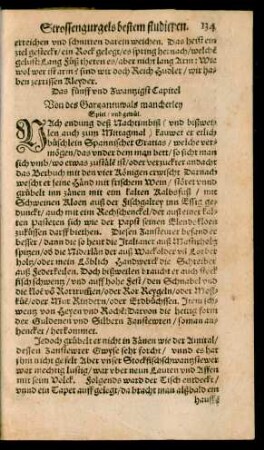 Strossengurgels bestem studieren. 134
erreichen vnd schnitten darein weichen. Das heist ein
ziel gesteckt / ein Rock gelegt / es spring hernach / welche
gelüst: Lang Füß theten es / aber nicht lang Arm: Wie
wol wer ist arm / sind wir doch Reich Hudler / wir ha=
ben zerrissen Kleyder.
Das fünff vnd Zwantzigst Capitel
Von des Gargantuwals mancherley
Spiel / vnd gewül.
NAch endung deß Nachtimbiß / vnd bißwei=
len auch zum Mittagmal / kauwet er etlich
büschlein Spannischer Gratias / welche ver=
mögen / das vnder dem man hett / so sicht man
sich vmb / wo etwas zustält ist / oder verzuckt er andacht
das Betbuch mit den vier Königen erwischt
wescht er seine Händ mit frischem Wein / störet vnd
grübelt inn Zänen mit eim kalten Kalbsfuß / mit
Schweinen Kloen auß der Fischgaltrey inn Essig ge=
dunckt / auch mit eim Rechschenckel / der auß einer kal=
ten Pasteten sich wie der Papst seinen Elendskloen
zuküssen darff biethen. Diesen Fansteürer befand er
besser / dann die so heut die Italianer auß Masticholtz
spitzen / ob die Niderländer auß Wackolder vñ Lorber
holtz / oder mein Löblich Handwerck die Schreiber
auß Federkeilen. Doch bißweilen braucht er auch stock
fisch schwentz / vnd auff hohe Fest / den Schnabel vnd
die Kloen
kül / oder Mur Rindern / oder Erdbüchssen.
wentz von Hetzen vnd Roche: Darvon die heutig form
der Guldenen vnd Silbern Zanstewren / so man an=
hencket / herkommet.
Jedoch grübelt er nicht in Zänen wie der Amiral /
dessen Zanstewrer Gwyse sehr forcht / vnnd es hat
ihm nicht gefelt Aber vnser Stockfischschwantzstewer
war mechtig lustig / war vber neun Lauten vnd Affen
mit seim Volck. Folgends ward der Tisch entdeckt /
vnnd ein Tapet auff gelegt / da bracht man alßbald ein
hauff